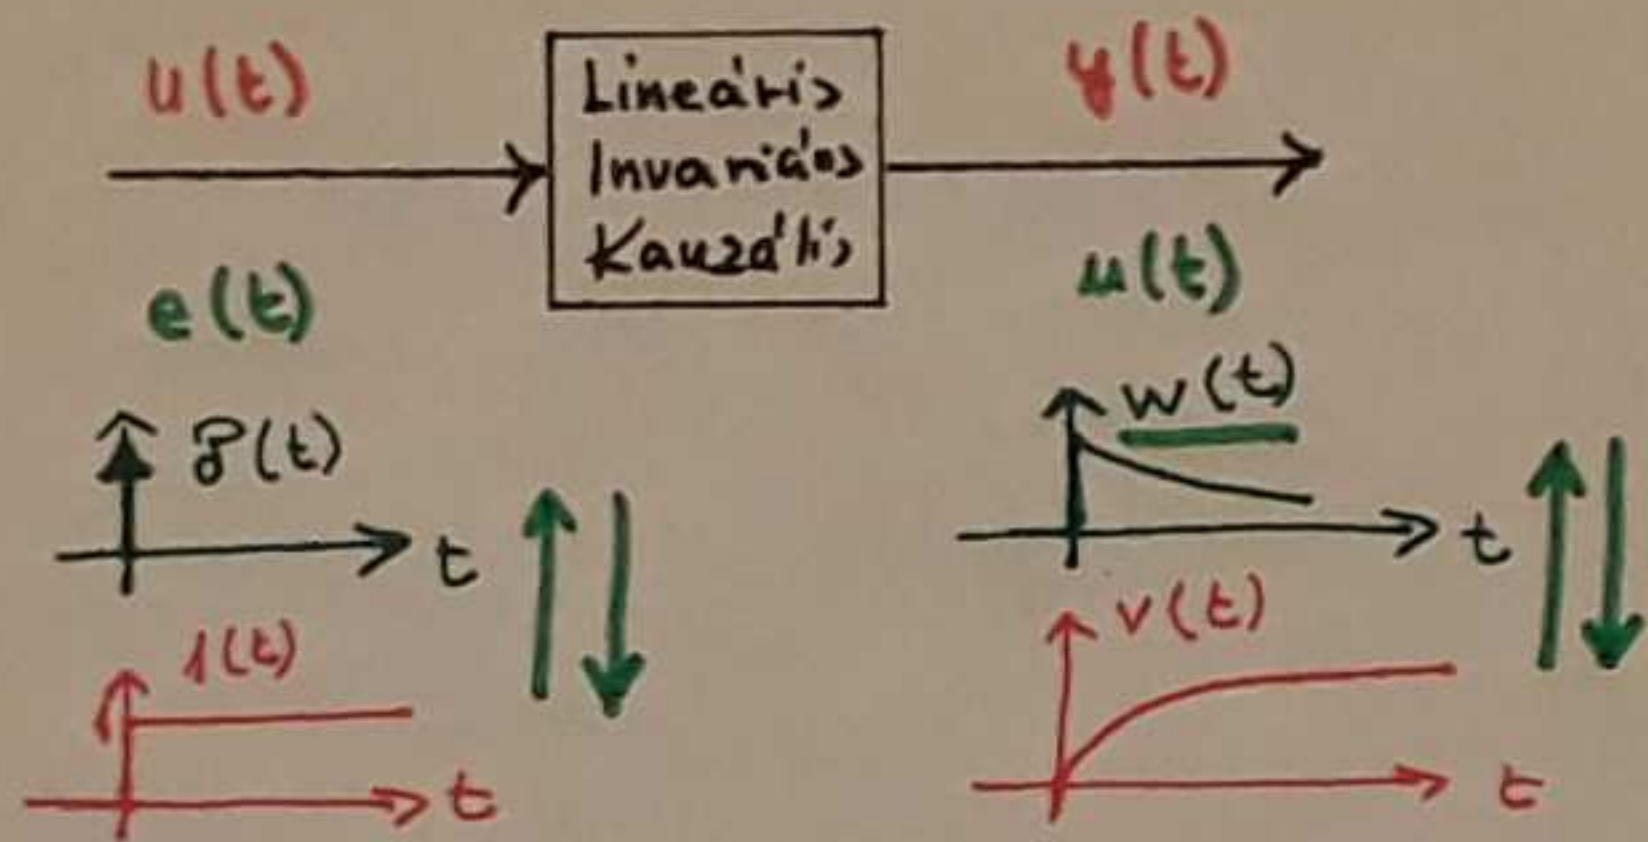 u(t)
Lineáris
Invariáns
Kauzális
y(t)
e(t)
u(t)
δ(t)
t
w(t)
t
1(t)
t
v(t)
t